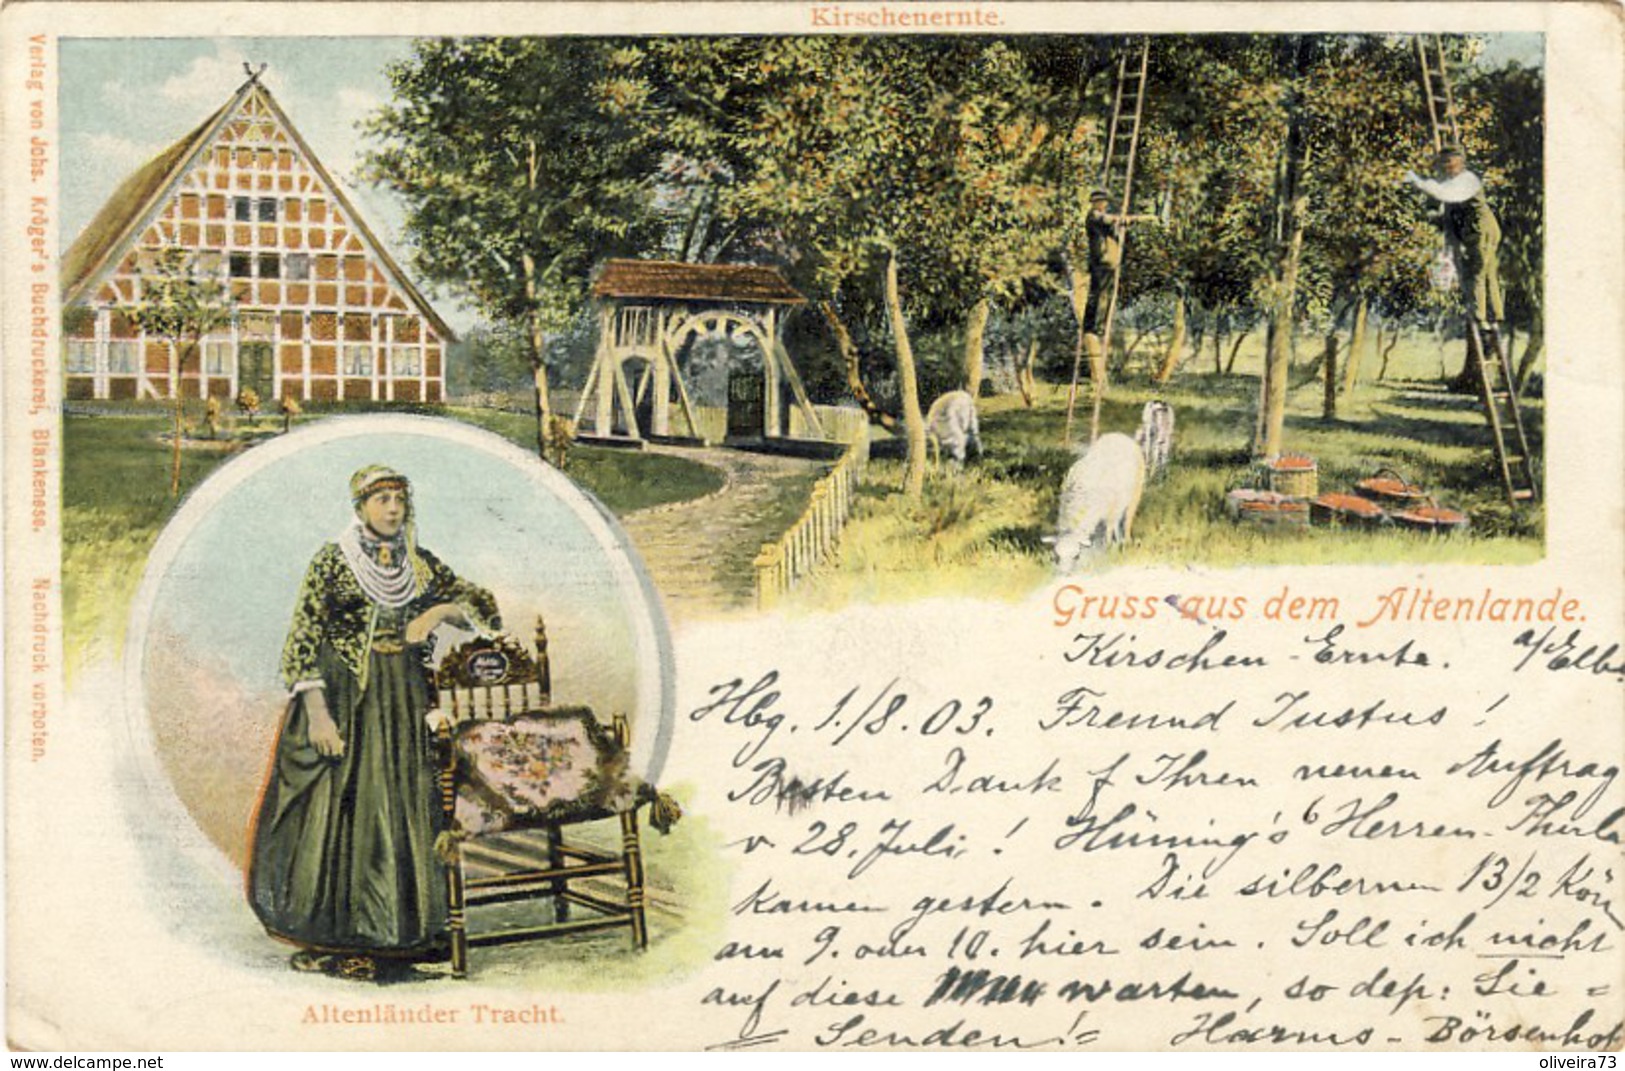 Kirschenernte.
Verlag von Johs. Kröger's Buchdruckerei, Blankenese. Nachdruck verboten.
Gruss aus dem Altenlande.
Kirschen-Ernte. a/Elbe
Hbg. 1./8.03. Freund Justus!
Besten Dank f Ihren neuen Auftrag
v 28. Juli! Hüning's Herren-
kamen gestern. Die silbernen 13/2
am 9. oder 10. hier sein. Soll ich nicht
auf diese warten, so dep: Sie =
= Senden! = Harms - Börsenhof
Altenländer Tracht.
oliveira73